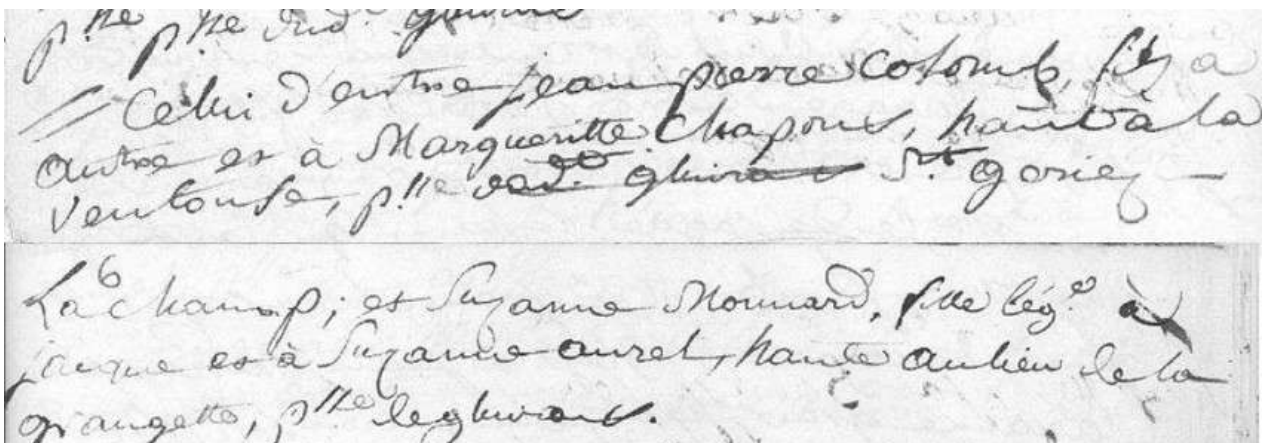 p.lle p.lle dud.
= Celui d'entre jean pierre Colomb, fils a
autre et à Margueritte Chapoux, hant à la
Ventouse, p.lle St gorie
La champ; et Suzanne Monnard, fille lég.e à
jacque et à Suzanne auret, hante au lieu de la
grangette, p.lle